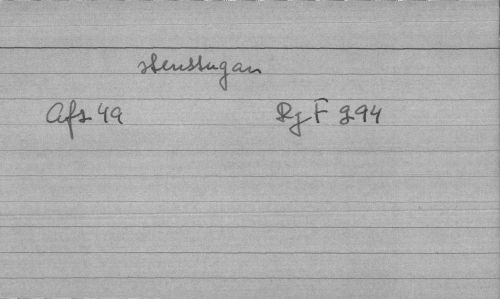 stenstugan
Afs 49 Rg F 994